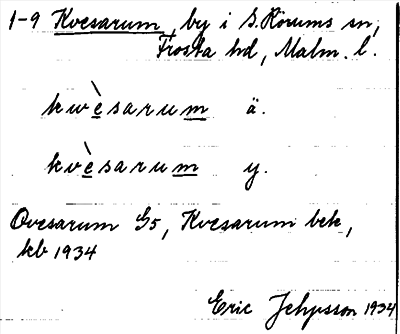 1-9 Kvesarum, by i S. Rörums sn,
Frosta hd, Malm. l.
kwèsarum ä.
kvèsarum y.
Qvesarum G5, Kvesarum bek,
kb 1934
Eric Jehpsson 1934